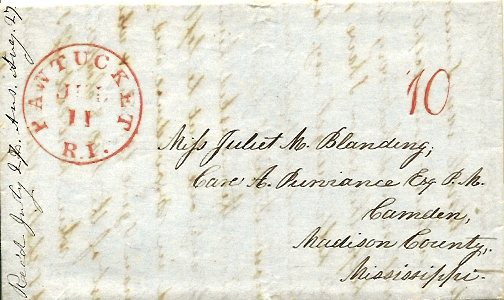 PAWTUCKET
JUL
11
R.I.
10
Miss Juliet M. Blanding,
Care A. Purviance Esq P.M.
Camden,
Madison County,
Mississippi.
Recd July Ans. Aug. 27